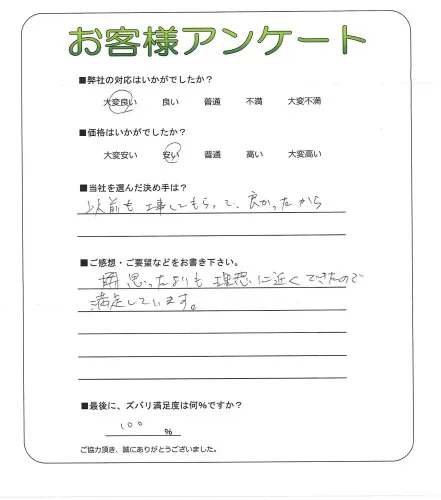 お客様アンケート
■弊社の対応はいかがでしたか？
大変良い 良い 普通 不満 大変不満
■価格はいかがでしたか？
大変安い 安い 普通 高い 大変高い
■当社を選んだ決め手は？
以前も工事してもらって、良かったから
■ご感想・ご要望などをお書き下さい。
思ったよりも理想に近くできたので
満足しています。
■最後に、ズバリ満足度は何％ですか？
100 %
ご協力頂き、誠にありがとうございました。